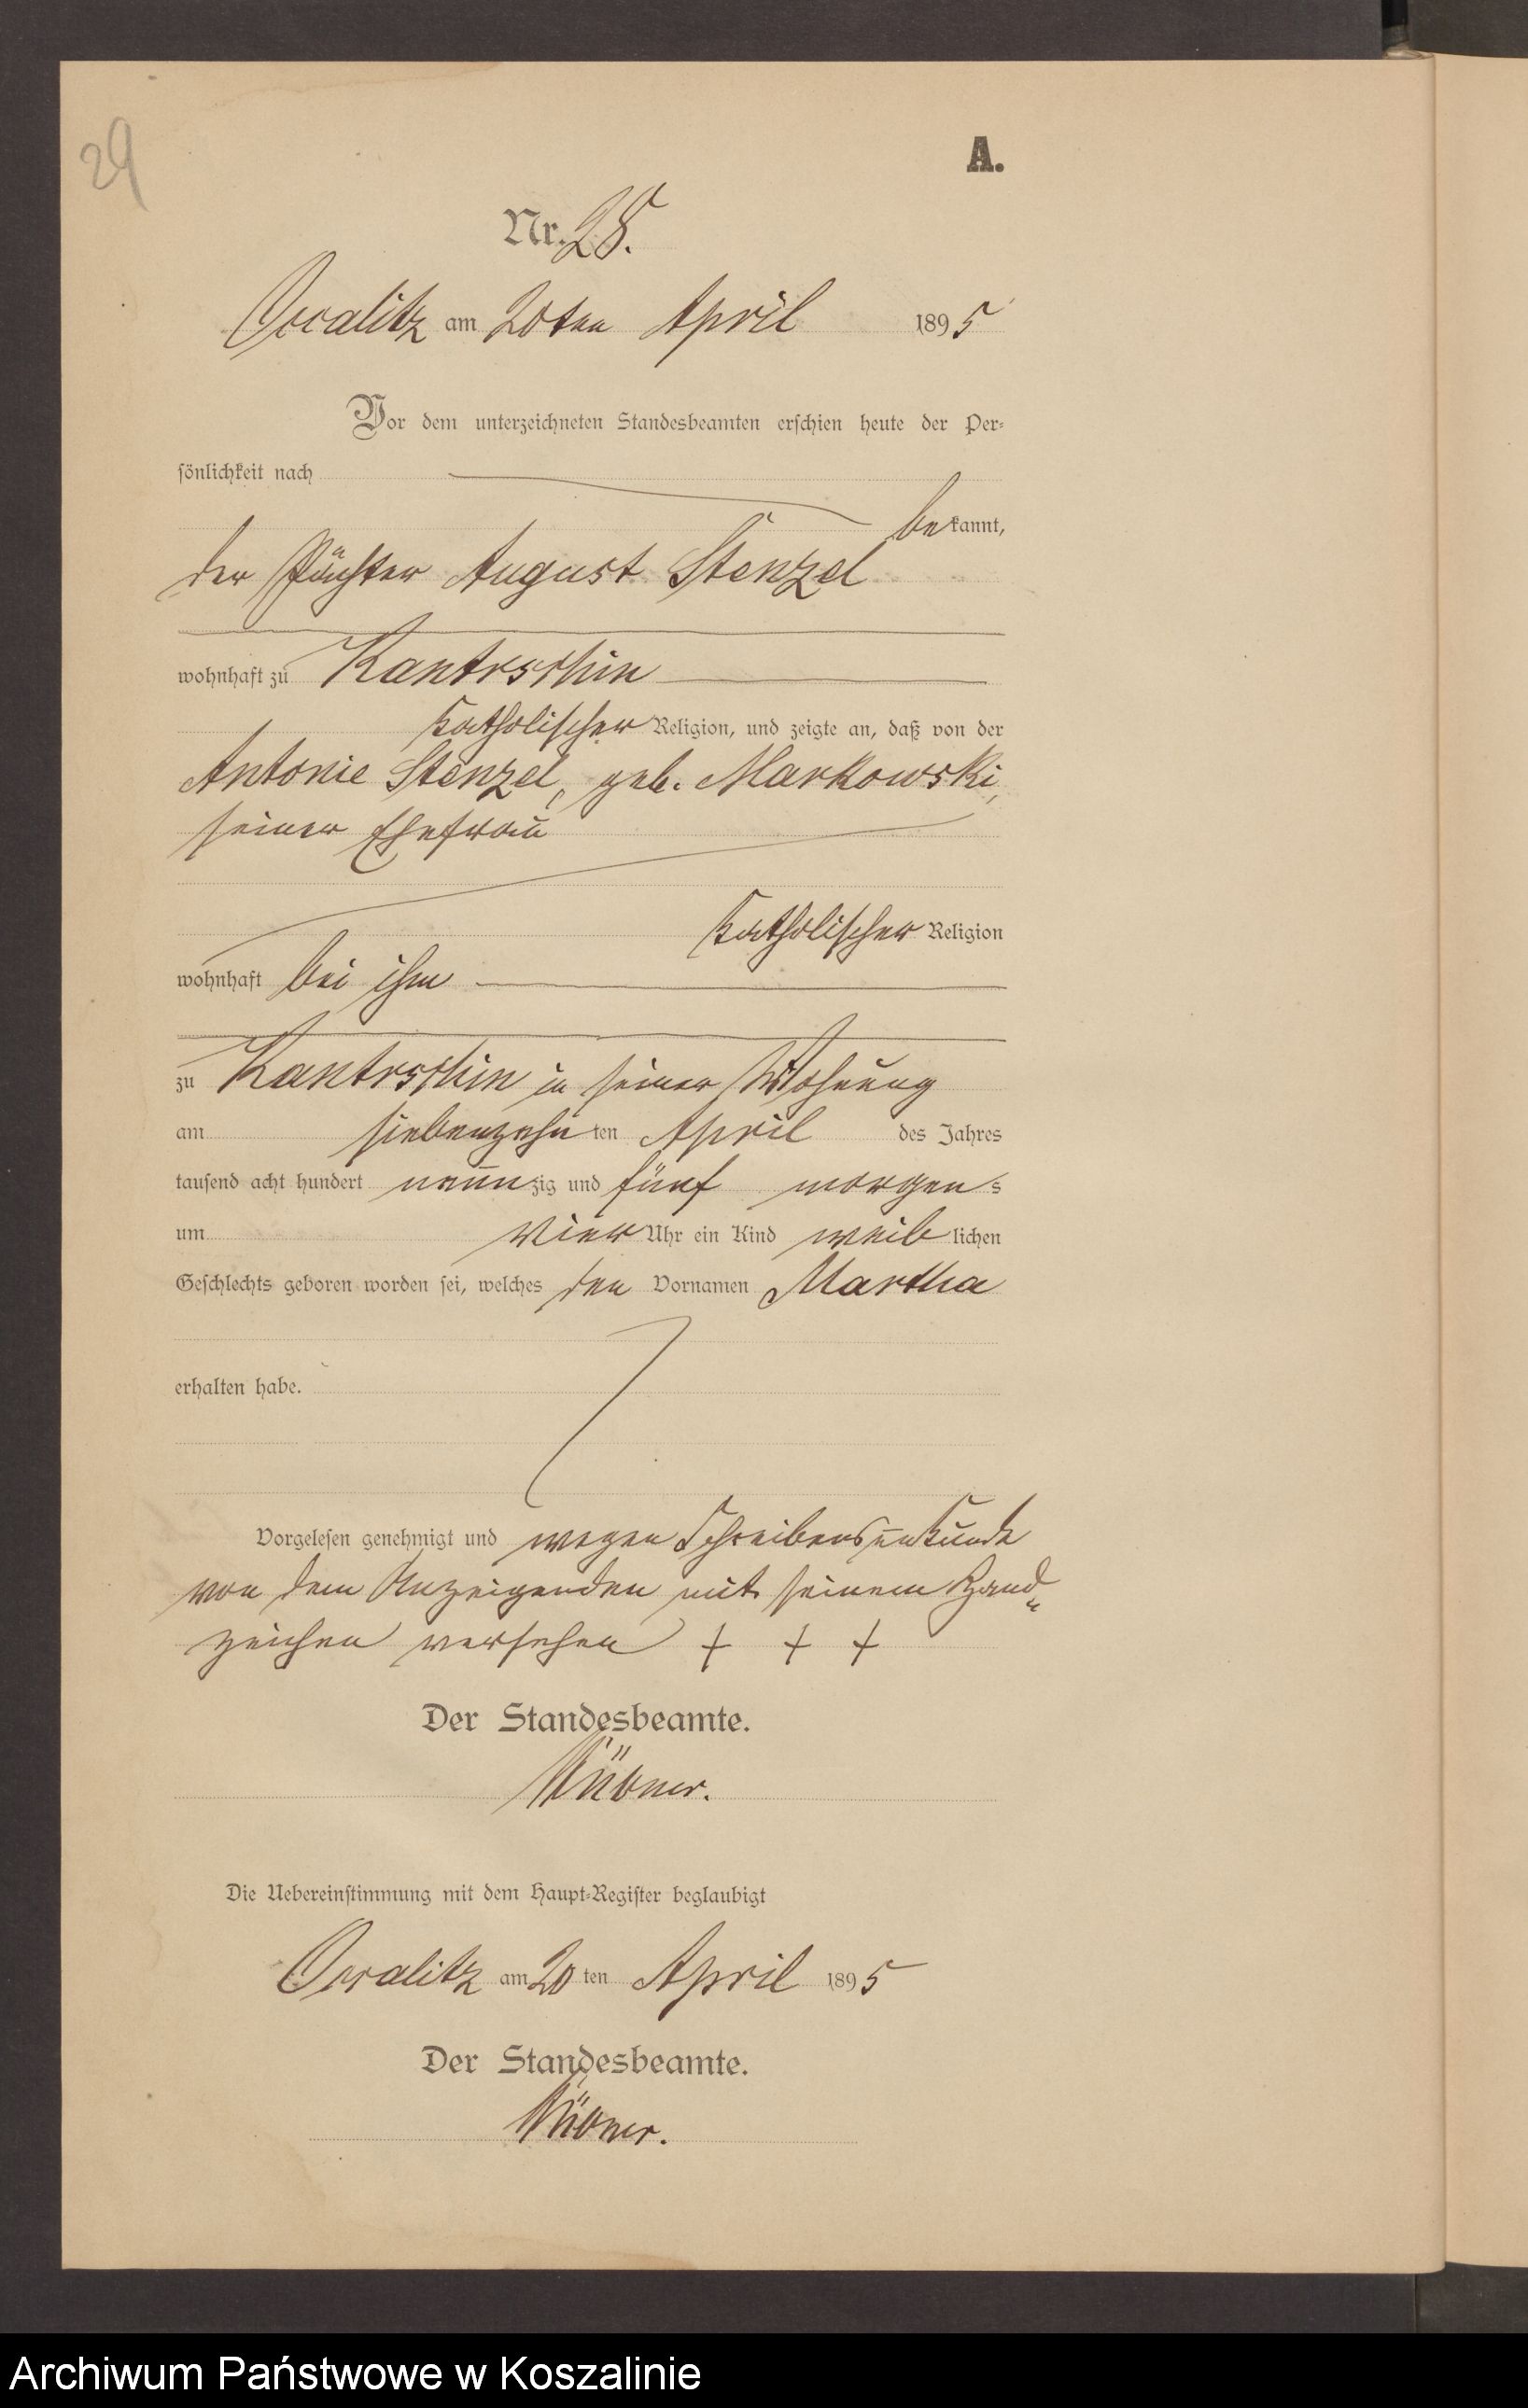 29
A.
Nr. 28.
Occalitz am 20ten April 1895
Vor dem unterzeichneten Standesbeamten erschien heute der Per-
sönlichkeit nach
bekannt,
der Pächter August Stenzel
wohnhaft zu Kantrschin
katholischer Religion, und zeigte an, daß von der
Antonie Stenzel, geb. Markowski,
seiner Ehefrau
katholischer Religion
wohnhaft bei ihm
zu Kantrschin in seiner Wohnung
am siebenzehnten April des Jahres
tausend acht hundert neunzig und fünf morgens
um vier Uhr ein Kind weiblichen
Geschlechts geboren worden sei, welches den Vornamen Martha
erhalten habe.
Vorgelesen genehmigt und wegen Schreibensunkunde
von dem Anzeigenden mit seinem Hand-
zeichen versehen + + +
Der Standesbeamte.
Die Uebereinstimmung mit dem Haupt-Register beglaubigt
Occalitz am 20ten April 1895
Der Standesbeamte.
Archiwum Państwowe w Koszalinie